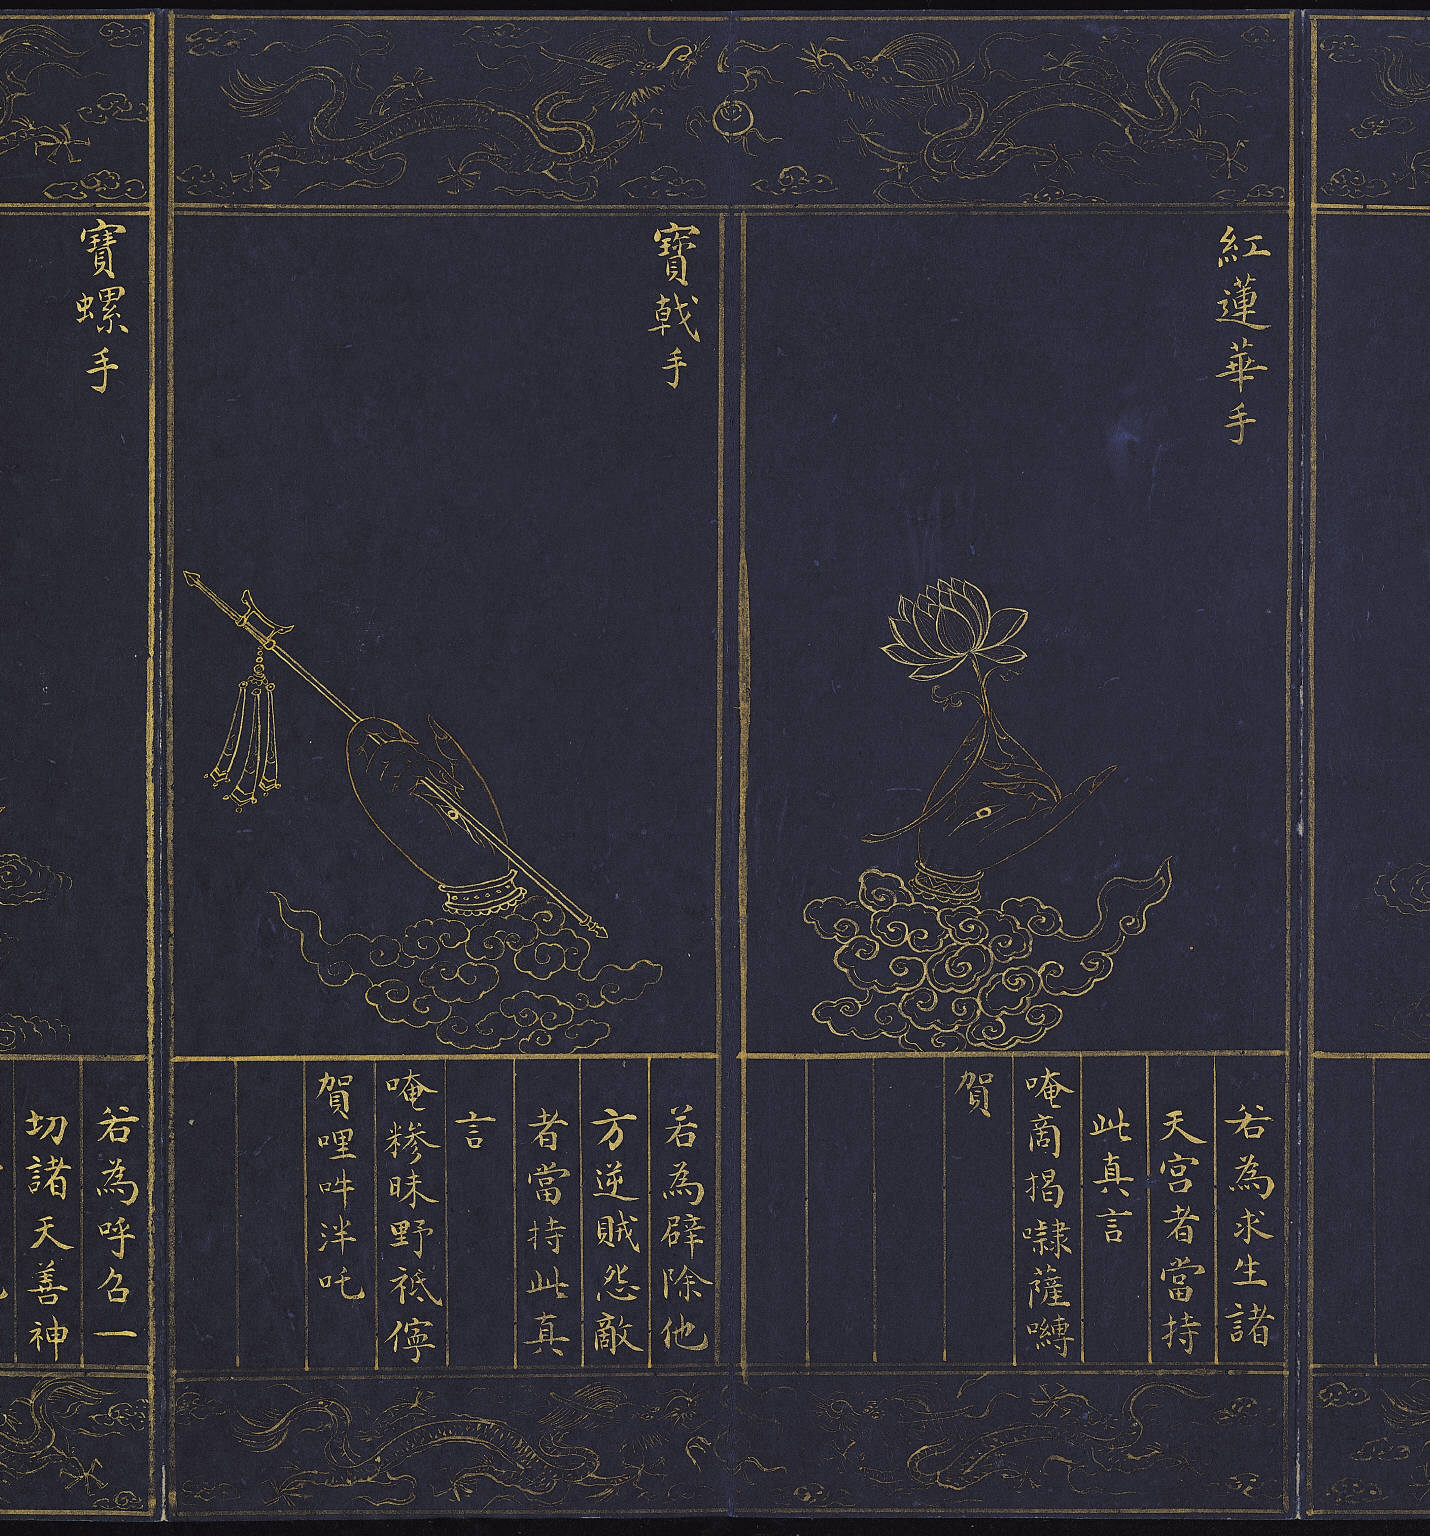 紅蓮華手
若為求生諸
天宮者當持
此真言
唵商揭㘑薩嚩
賀
寶戟手
若為辟除他
方逆賊怨敵
者當持此真
言
唵糝昧野祗儜
賀哩吽泮吒
寶螺手
若為呼召一
切諸天善神